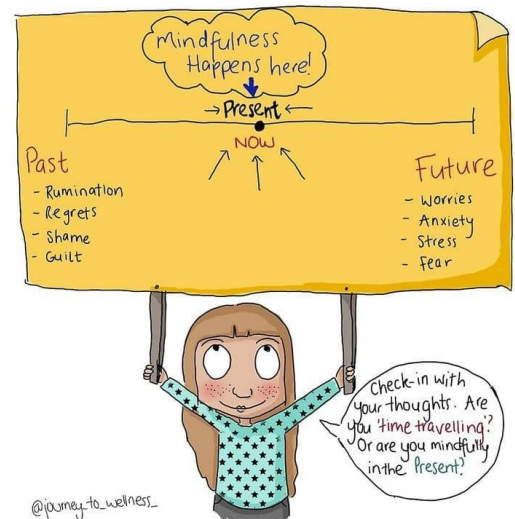 Mindfulness
Happens here!
→ Present ←
NOW
Past
- Rumination
- Regrets
- Shame
- Guilt
Future
- Worries
- Anxiety
- Stress
- Fear
Check-in with
your thoughts. Are
you 'time travelling'?
Or are you mindfully
in the Present?
@journey_to_wellness_